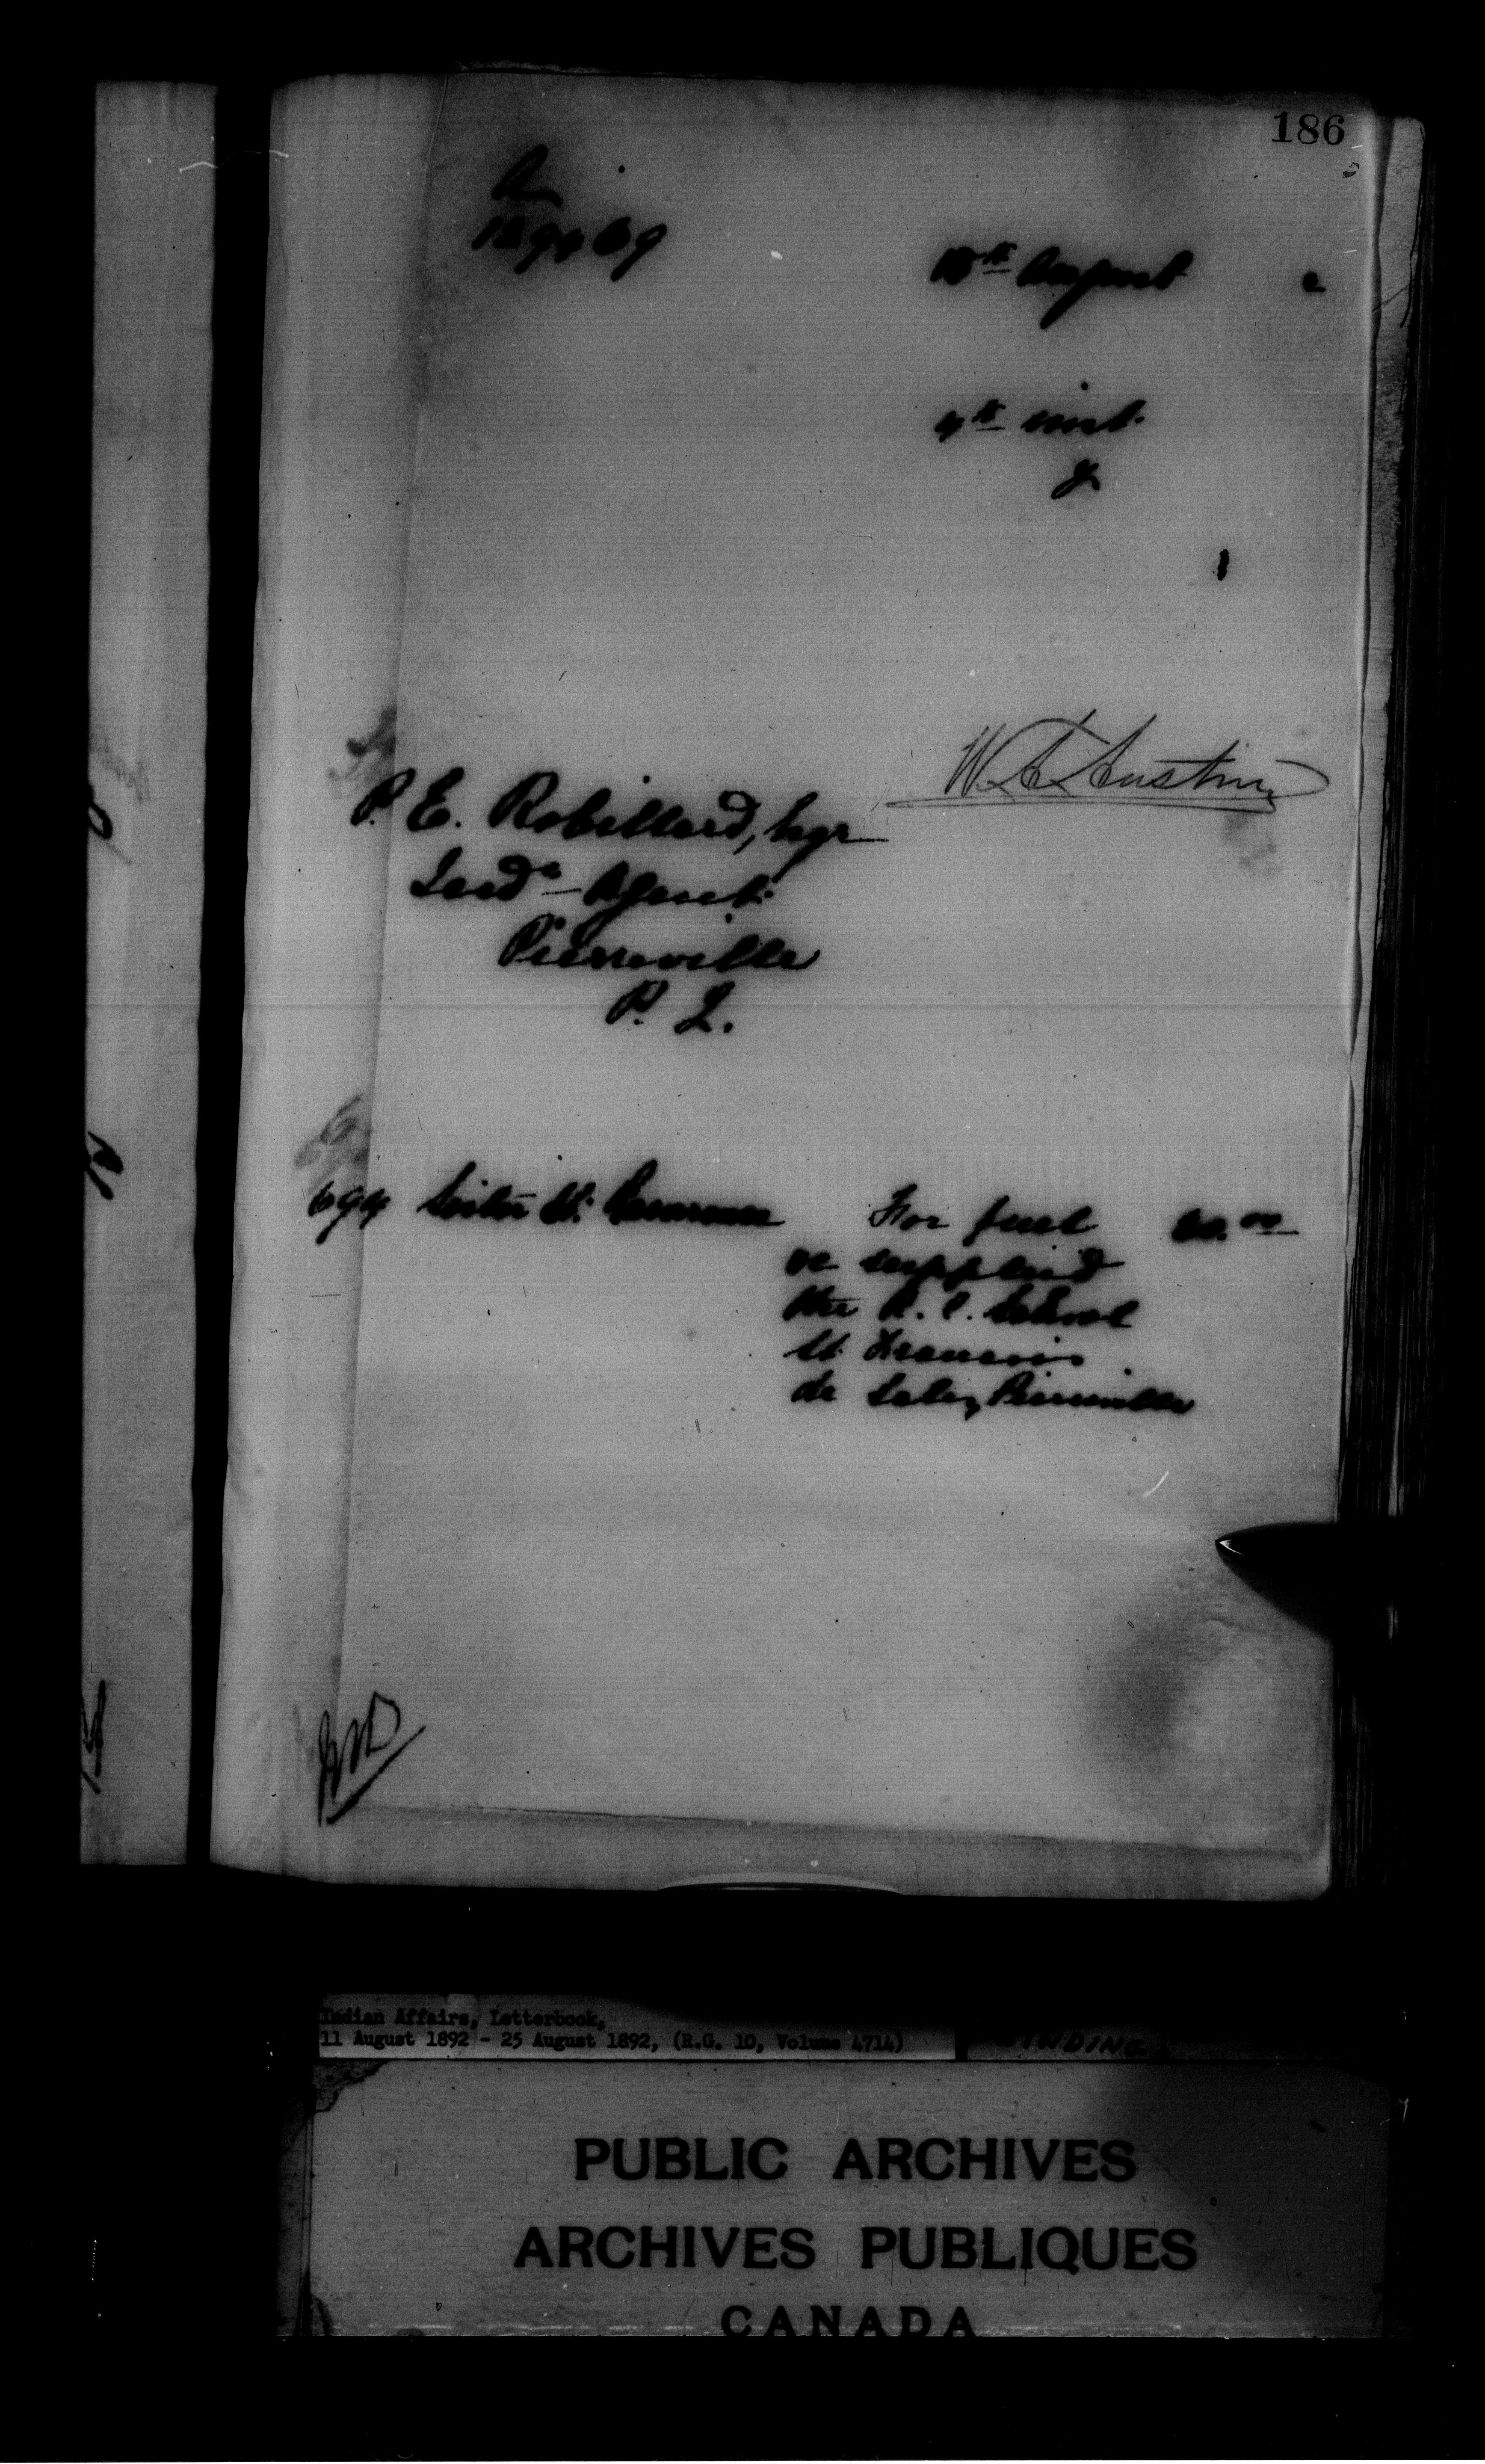 186
A
18th August 2
4th inst.
W. A. Austin
P. E. Robillard, Esqr
Ind'n Agent
Pierreville
P. Q.
694 Sister St. For fuel 20.00
&c supplied
the R. C. School
St. Francois
de Sales, Pierreville
Indian Affairs, Letterbook,
11 August 1892 - 25 August 1892, (R.G. 10, Volume 4714)
BINDING
PUBLIC ARCHIVES
ARCHIVES PUBLIQUES
CANADA